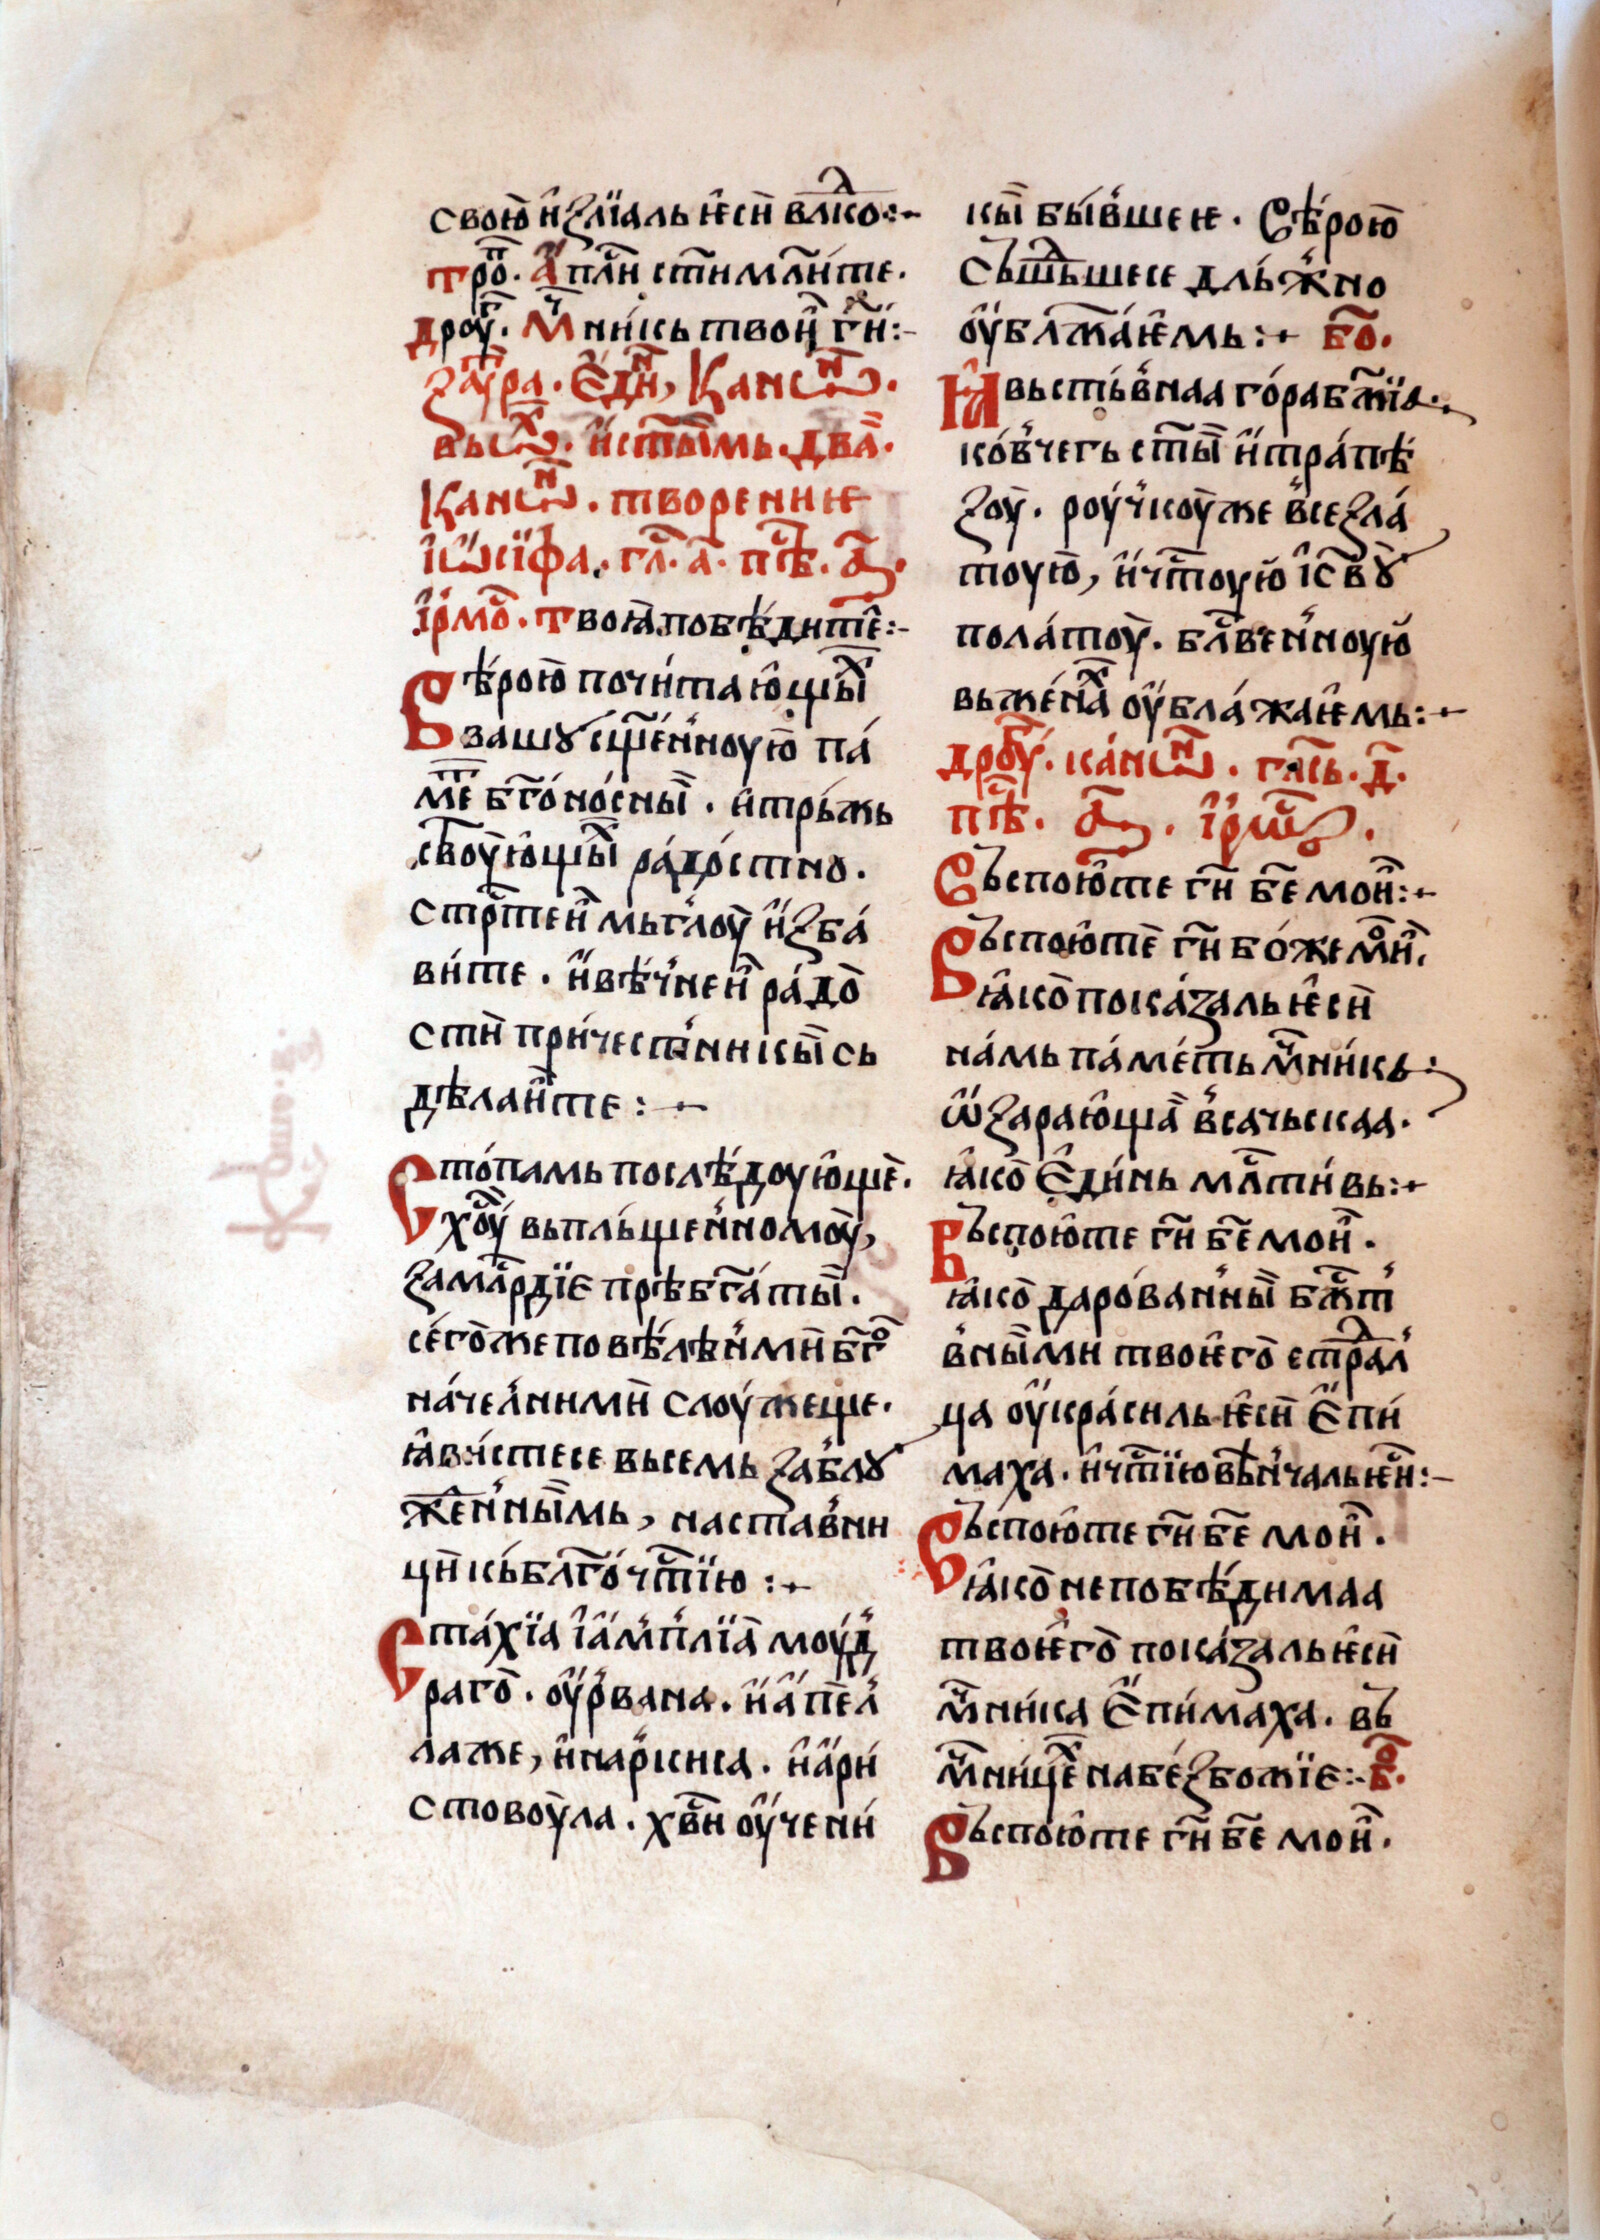 своѥ̑ и҆злїаль ѥ҆сѝ вл҃кⷧо:~
тро̑ⷫ. А҆пⷭ҇ли ст҃и мл҃и́те.
дроуⷢ҇. Мⷱ҇ни́кь твои̑ гⷭ҇и:–
заⷱ҇ра. Е҆ди́ⷩ, Канѡⷩ҇.
вьѡⷯ. и҆ ст҃ы́имь. два̀.
Канѡⷩ҇. творение
і҆ѡ҆сїфа. гл҃. а҃. пⷭ҇ѣ. а҃.
і҆рмо̑ⷭ. Твоꙗ̀ побѣ́дитеⷧ:–
Вѣ́рою почи́таю҆щы́иⷯ
вашꙋ сщ҃е́нноую̀ па́
меⷮ бг҃оно́сныи. и трьжь
ство́ую҆щы́иⷯ ра́достно.
стрⷭ҇теи̑ мьглоу̀ и҆зба́
ви́те. и҆ вѣ́чнеи̑ ра́до̀
стѝ при́честьникы́и сь
дѣлаи̑те :~
Сто́памь послѣ́доую҆щѐ.
хоⷭ҇у́ вьпль́щенномоу̀,
за мⷧ҇рⷭ҇дїе прѣбг҃а́тыи.
се́го̀же повѣ́лѣнмѝ бг҃оⷪ
на́челнимѝ слоу́жеще.
ꙗ҆ви́стесе вьсемь за́блꙋ
жⷣенныимь, наставни
цѝ кь́ бл҃го́чⷭ҇тїю :~
Ста́хїа і҆ а҆мплїа̀ моу́д
раго̀. оу҆рвана. и҆ а҆пе́л
лаже, и҆ нар́киса. и҆ а҆ри́
стовоу̀ла. хв҃и оу҆чени́
кы́и бы́вшее. Вѣ́рою̀
сьшьⷣшесе дль́жно
оу҆бл҃жа́ѥ҆мь:~ бо҃.
Ꙗ҆вьстьвнаа го́ра бж҃їа.
ко́вчегь ст҃ы́и и҆ тра́пѣ
зоу̀. роу́чкоу̀же все зла́
тоую̀, и҆ чⷭ҇тоую̀ і҆сⷭ҇вꙋ̀
пола́тоу̀. бл҃венноую̀
вь же́наⷯ оу҆бла́жаѥ҆мь:~
дроуⷢ҇. ка́нѡⷩ. гла́сь. д҃.
пⷭ҇ѣ. а҃. і҆рмѡⷭ҇.
Вьспою҆те гⷭ҇и бж҃е мои̑:~
Вьспою҆тѐ гⷭ҇и бо́же мо̑и.
ꙗ҆ко̀ пока́заль ѥ҆сѝ
на́мь па́меть мⷱ҇ни́кь:
ѡ҆зараю҆ща̀ всачьскаа.
ꙗ҆ко̀ Е҆ди́нь млⷭ҇ти́вь:~
Вьспою҆те гⷭ҇и бж҃е мои̑.
ꙗ҆ко̀ даро́ванныи бжⷭ҇т
вны́ими твоѥ҆го̀ стра́ⷣл
ца оу҆кра́силь ѥ҆сѝ Е҆пи́
маха. и҆ чⷭ҇тїю вѣнчаль ѥ҆сѝ:–
Вьспою҆те гⷭ҇и бж҃е мои̑.
ꙗ҆ко̀ непобѣ́димаа
твоѥ҆го̀ пока́заль ѥ҆сѝ
мⷱ҇ника Е҆пи́маха. вь
мⷱ҇ни́цеⷯ на бе́збожїе:– бо҃.
Вьспою҆те гⷭ҇и бж҃е мои̑.